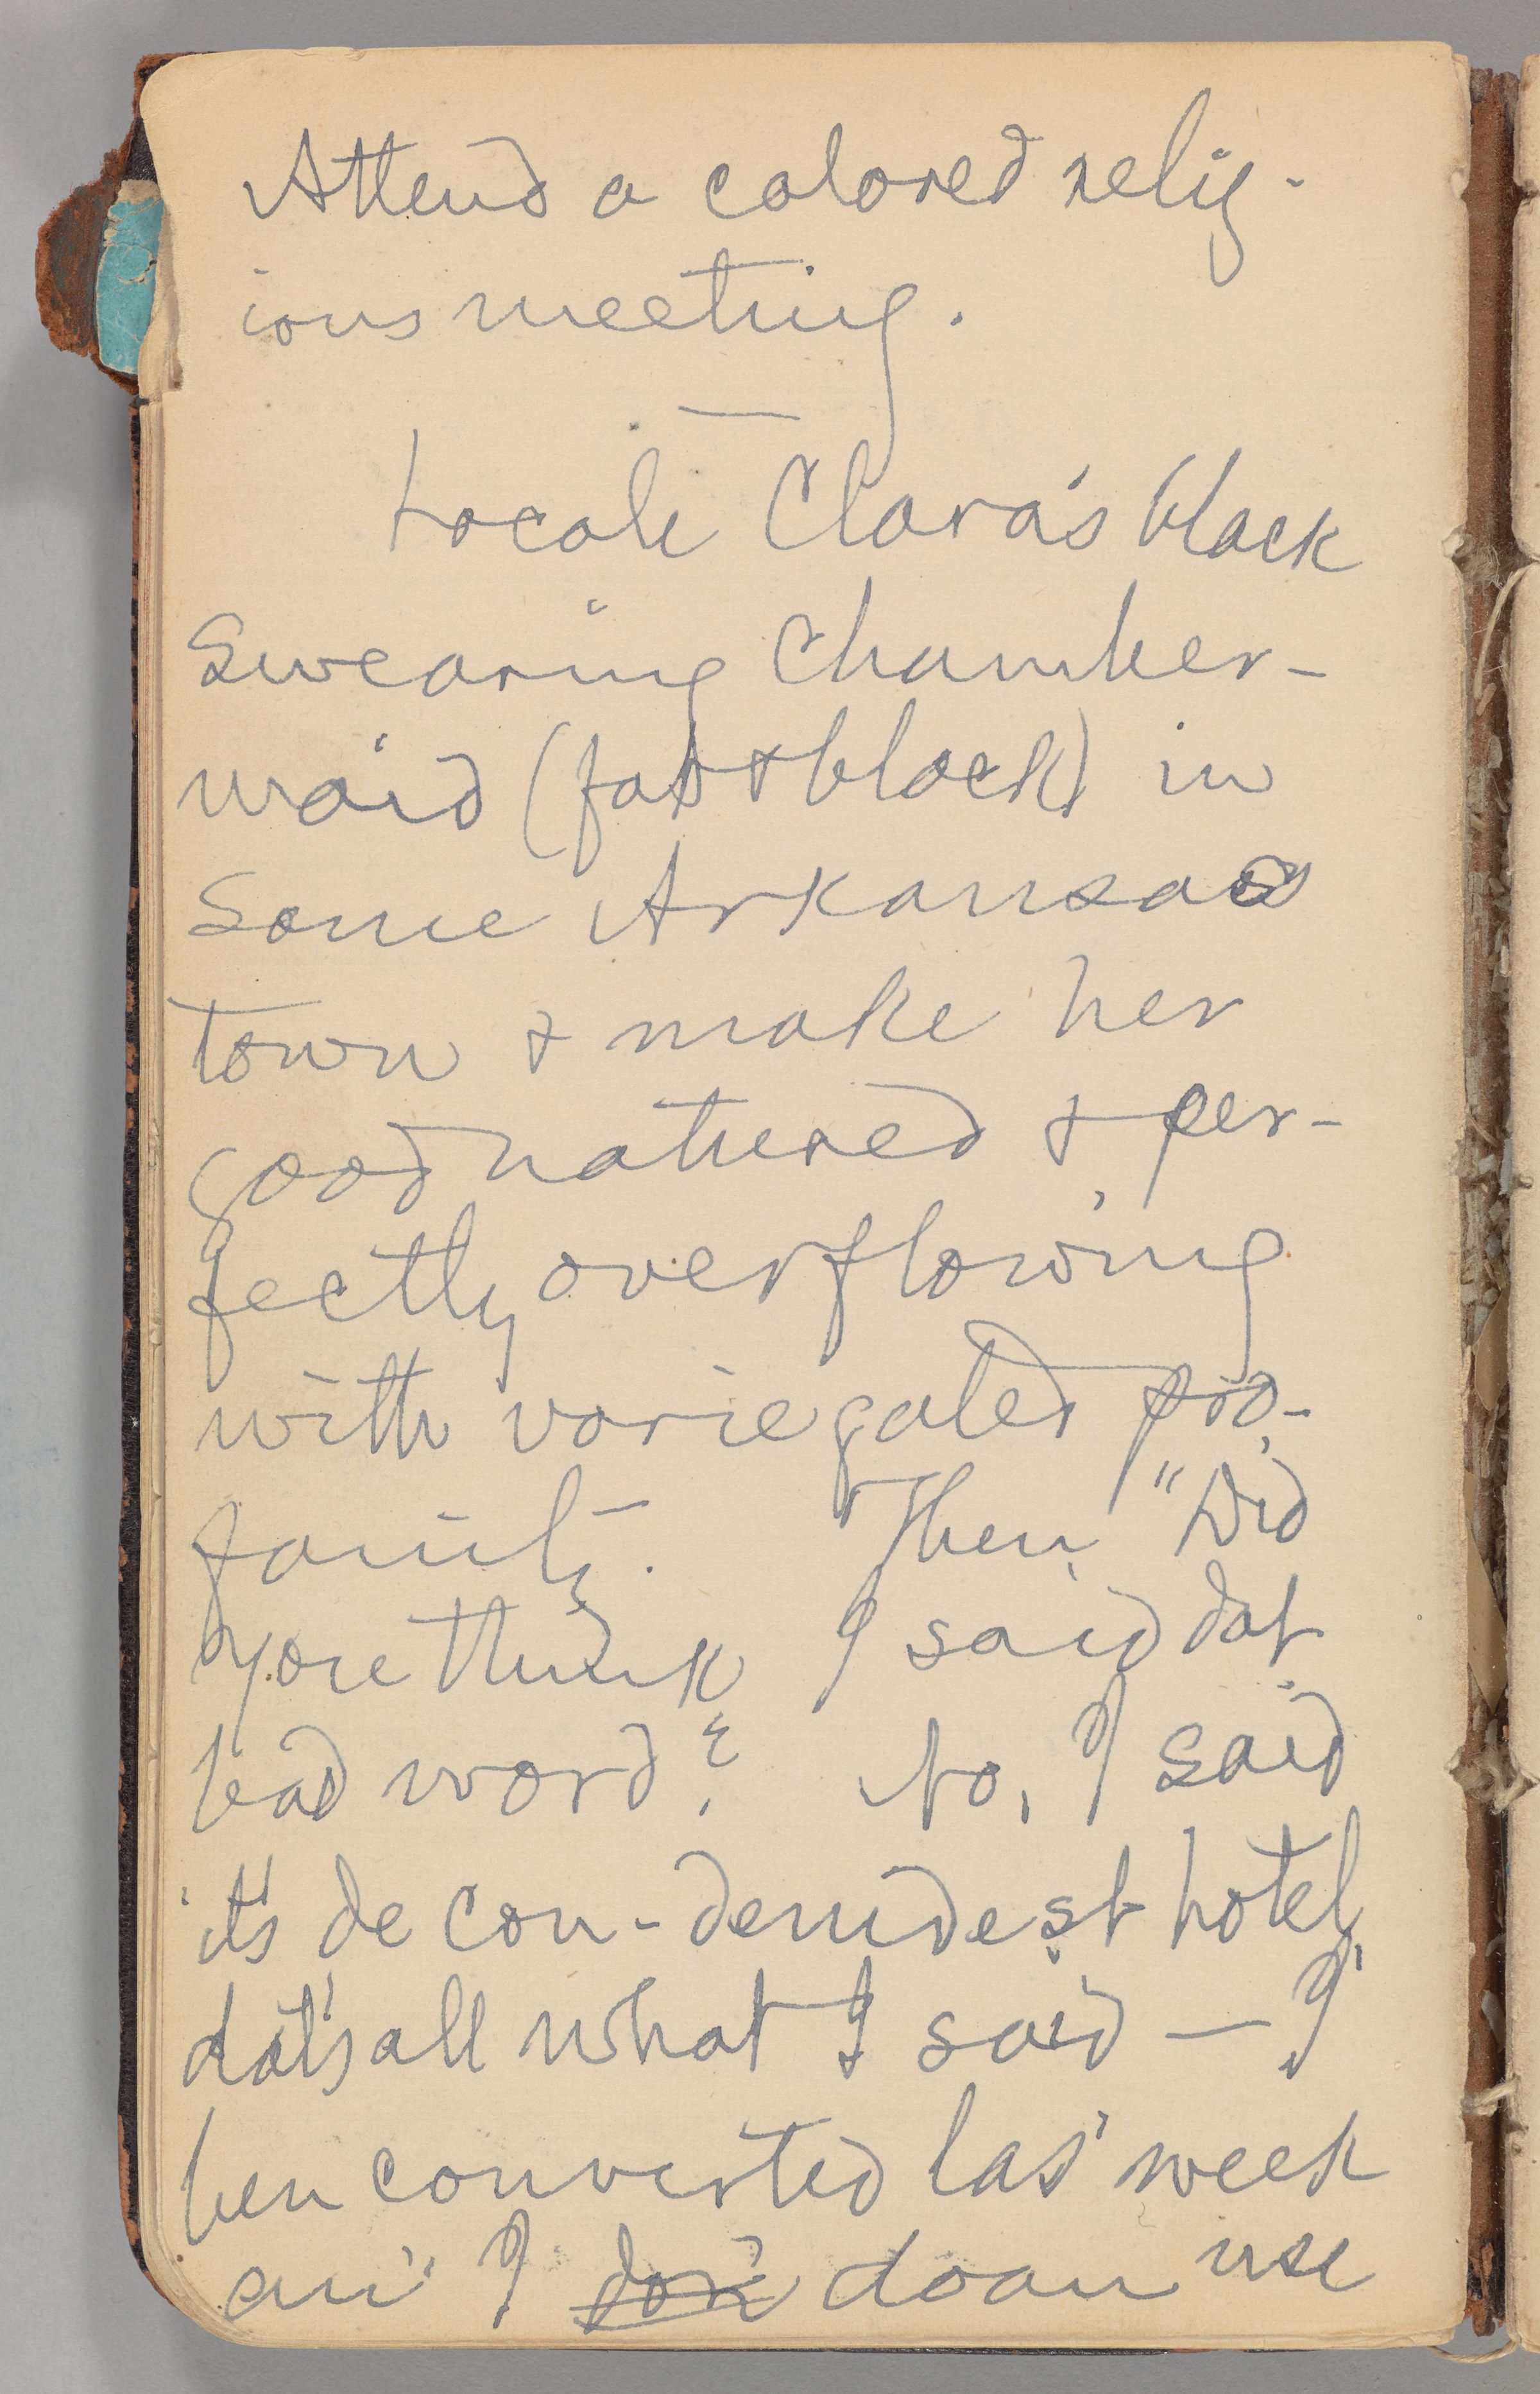 Attend a colored relig-
ious meeting.
—
Locate Clara's black
swearing chamber-
maid (fat & black) in
some Arkansas
town & make her
good natured & per-
fectly overflowing
with variegated pro-
fanity. Then, "Did
you think I said dat
bad word? No, I said
it's de con-demdest hotel,
dat's all what I said — I
ben converted las' week
an' I don' doan use